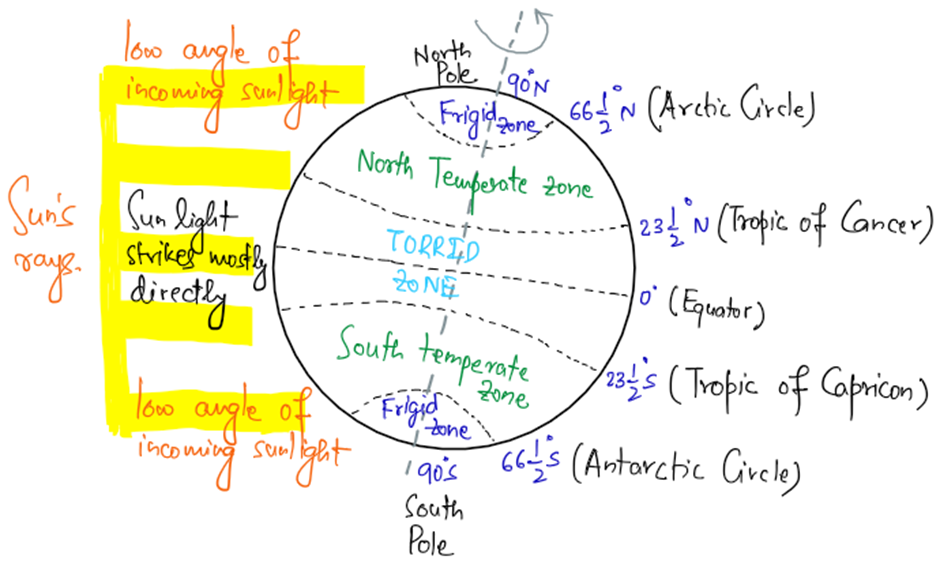 low angle of
incoming sunlight
Sun's
rays.
Sun light
strikes mostly
directly
low angle of
incoming sunlight
North
Pole
90°N
Frigid
zone
66 1/2° N (Arctic Circle)
North Temperate zone
23 1/2° N (Tropic of Cancer)
TORRID
ZONE
0° (Equator)
South temperate
zone
23 1/2° S (Tropic of Capricon)
Frigid
zone
66 1/2° S (Antarctic Circle)
90°S
South
Pole